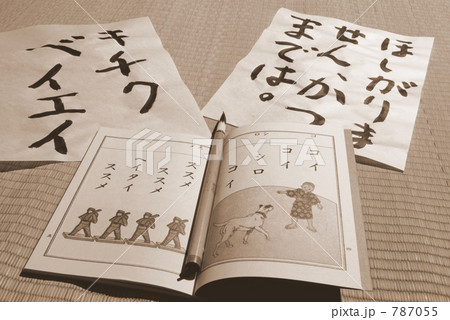 ほしがりま
せん、かつ
までは。
キチク
ベイエイ
コイ
コイ
シロ
コイ
ススメ
ススメ
ヘイタイ
ススメ
787055